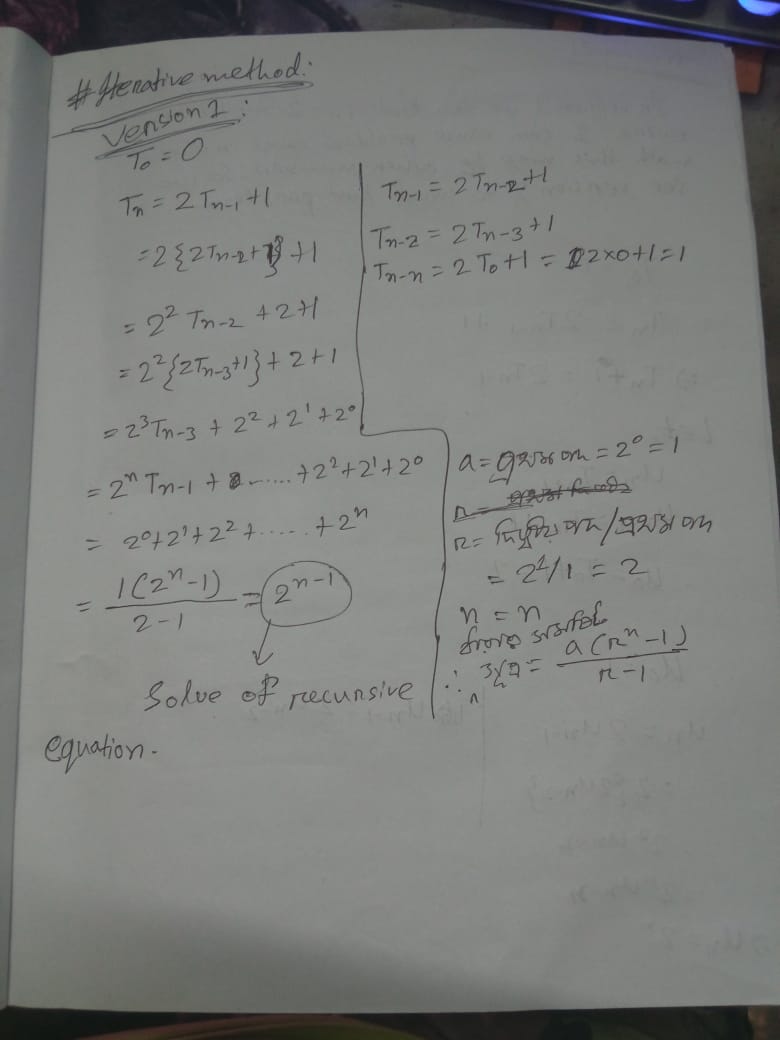 # Iterative method:
Version 1:
T₀ = 0
Tₙ = 2Tₙ₋₁ + 1
= 2{2Tₙ₋₂+1} + 1
= 2² Tₙ₋₂ + 2+1
= 2²{2Tₙ₋₃+1} + 2 + 1
= 2³Tₙ₋₃ + 2² + 2¹ + 2⁰
= 2ⁿ Tₙ₋₁ + ...... + 2² + 2¹ + 2⁰
= 2⁰ + 2¹ + 2² + ..... + 2ⁿ
= 1(2ⁿ-1)/2-1 = 2ⁿ⁻¹
Solve of recursive
equation.
Tₙ₋₁ = 2Tₙ₋₂+1
Tₙ₋₂ = 2Tₙ₋₃+1
Tₙ₋ₙ = 2T₀+1 = 2×0+1=1
a = প্রথম পদ = 2⁰ = 1
r = দ্বিতীয় পদ / প্রথম পদ
= 2¹/1 = 2
n = n
∴ = a(rⁿ-1)/r-1